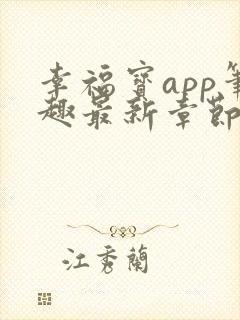 幸福寶app筆
趣最新章節
江秀蘭